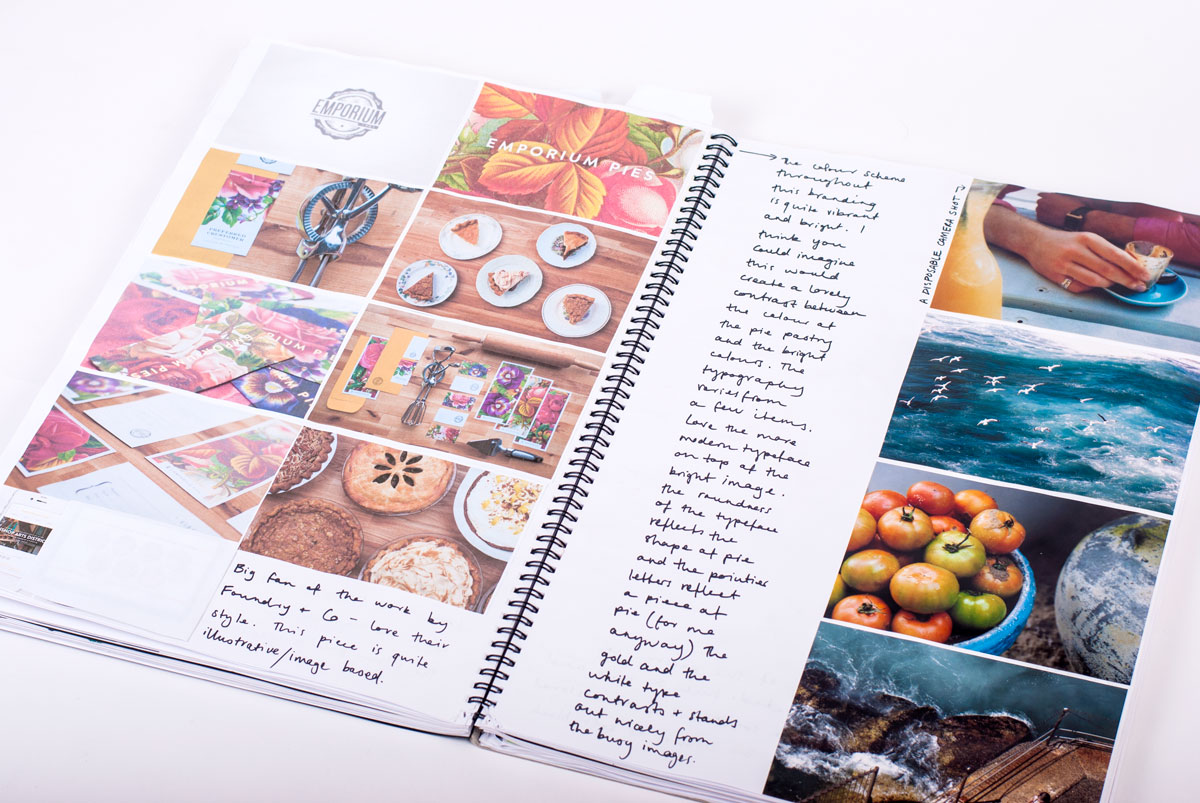 EMPORIUM
EMPORIUM PIES
PREFERRED
CUSTOMER
Big fan of the work by
Foundry + Co – love their
style. This piece is quite
illustrative/image based.
→ The colour scheme
throughout
this branding
is quite vibrant
and bright. I
think you
could imagine
this would
create a lovely
contrast between
the colour of
the pie pastry
and the bright
colours. The
typography
varies from
a few items.
Love the more
modern typeface
on top of the
bright image.
The roundness
of the typeface
reflects the
shape of pie
and the pointies
letters reflect
a piece of
pie (for me
anyway) The
gold and the
white type
contrasts + stands
out nicely from
the busy images.
A DISPOSABLE CAMERA SHOT →